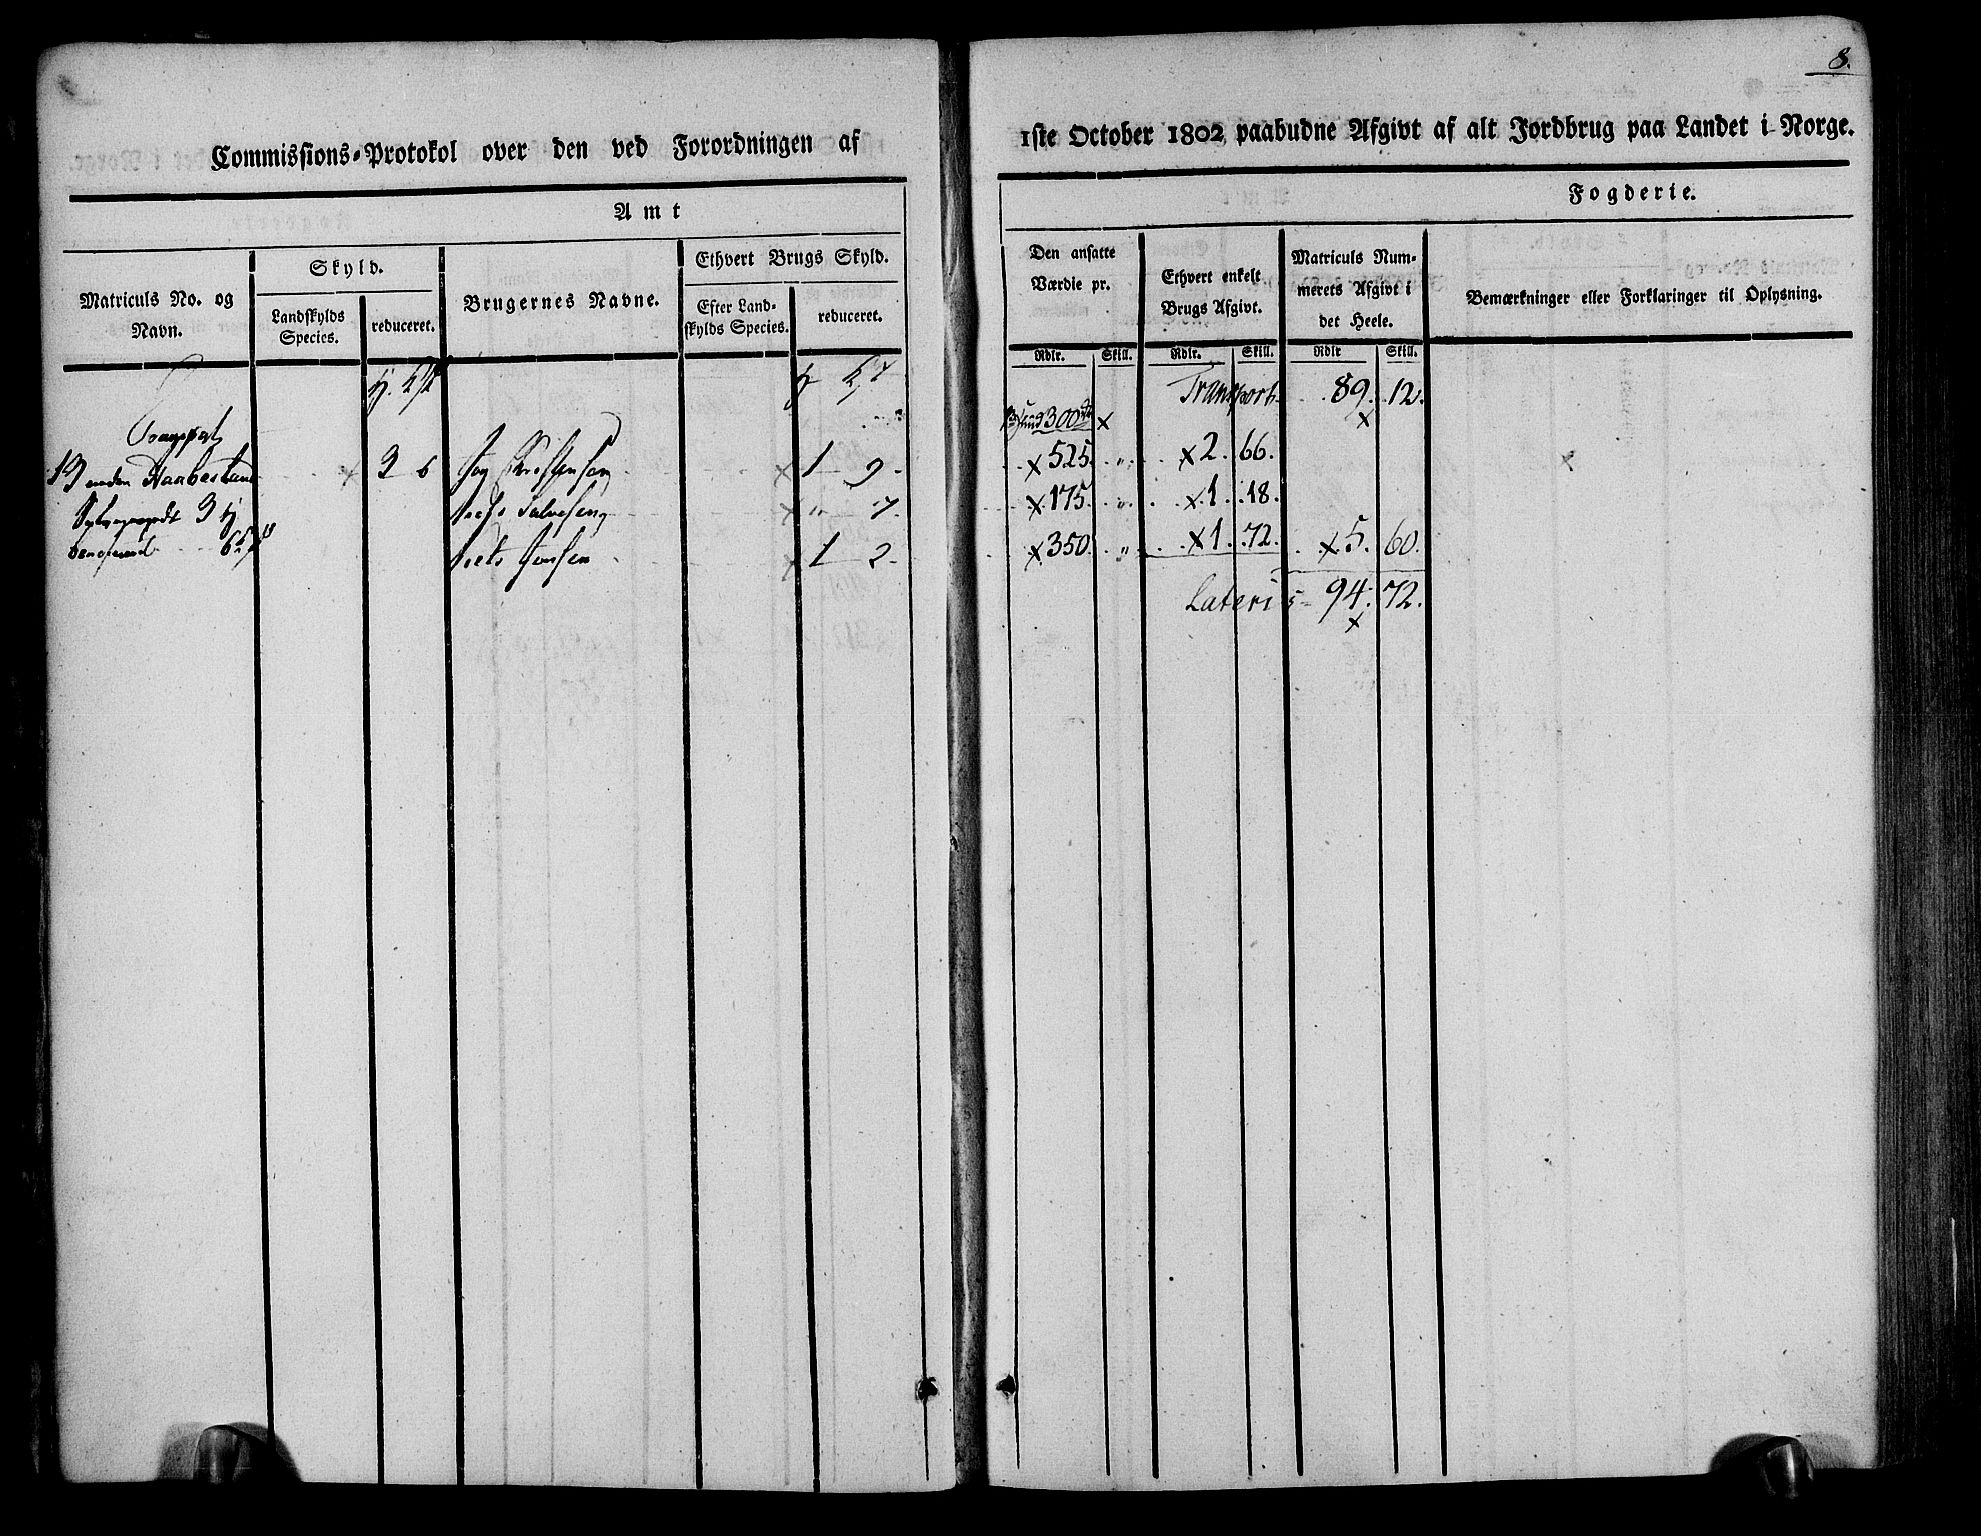 8.
Commissions-Protokol over den ved Forordningen af
1ste October 1802 paabudne Afgivt af alt Jordbrug paa Landet i Norge.
Amt
Fogderie.
Matriculs No. og Navn.
Skyld.
Landskylds Species.
reduceret.
Brugernes Navne.
Ethvert Brugs Skyld.
Efter Landskylds Species.
reduceret.
Den ansatte Værdie pr.
Ethvert enkelt Brugs Afgivt.
Matriculs Nummerets Afgivt i det Heele.
Bemærkninger eller Forklaringer til Oplysning.
Rdlr. Skill. Rdlr. Skill. Rdlr Skill.
Transport 89. 12.
300
13 3 6 Christensen 1 9 525 " 2. 66.
3 Salvesen " 7. 175 " 1. 18.
Niels Jensen 1 2 350 " 1. 72. 5. 60.
Lateris 94. 72.